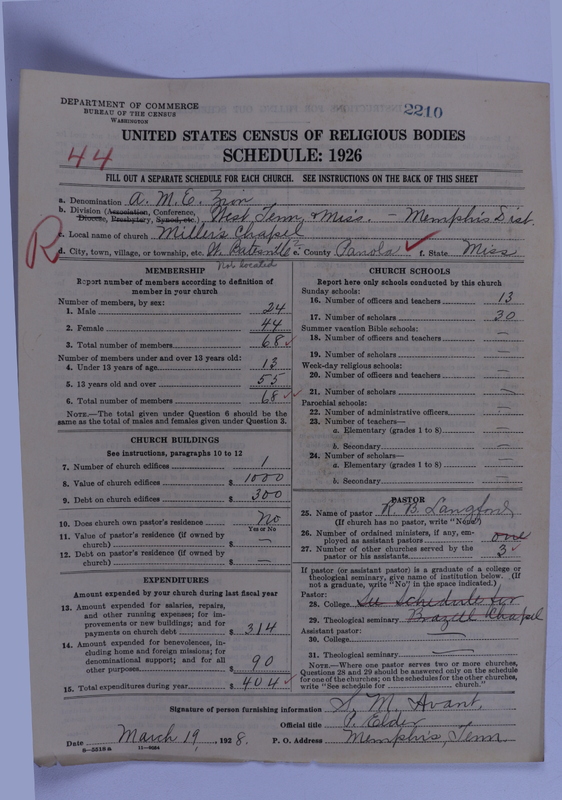 2210
DEPARTMENT OF COMMERCE
BUREAU OF THE CENSUS
WASHINGTON
UNITED STATES CENSUS OF RELIGIOUS BODIES
44
SCHEDULE: 1926
FILL OUT A SEPARATE SCHEDULE FOR EACH CHURCH. SEE INSTRUCTIONS ON THE BACK OF THIS SHEET
a. Denomination A. M. E. Zion
b. Division (Association, Conference, Diocese, Presbytery, Synod, etc.) West Tenn & Miss. - Memphis Dist.
c. Local name of church Miller's Chapel
R
d. City, town, village, or township, etc. W. Batesville? e. County Panola ✓ f. State Miss
Not located
MEMBERSHIP
Report number of members according to definition of member in your church
Number of members, by sex:
1. Male 24
2. Female 44
3. Total number of members 68 ✓
Number of members under and over 13 years old:
4. Under 13 years of age 13
5. 13 years old and over 55
6. Total number of members 68 ✓✓
NOTE.—The total given under Question 6 should be the same as the total of males and females given under Question 3.
CHURCH BUILDINGS
See instructions, paragraphs 10 to 12
7. Number of church edifices 1
8. Value of church edifices $ 1000
9. Debt on church edifices $ 300
10. Does church own pastor's residence No
Yes or No
11. Value of pastor's residence (if owned by church) $ —
12. Debt on pastor's residence (if owned by church) $ —
EXPENDITURES
Amount expended by your church during last fiscal year
13. Amount expended for salaries, repairs, and other running expenses; for improvements or new buildings; and for payments on church debt $ 314
14. Amount expended for benevolences, including home and foreign missions; for denominational support; and for all other purposes $ 90
15. Total expenditures during year $ 404 ✓
CHURCH SCHOOLS
Report here only schools conducted by this church
Sunday schools:
16. Number of officers and teachers 13
17. Number of scholars 30
Summer vacation Bible schools:
18. Number of officers and teachers —
19. Number of scholars —
Week-day religious schools:
20. Number of officers and teachers —
21. Number of scholars —
Parochial schools:
22. Number of administrative officers —
23. Number of teachers—
a. Elementary (grades 1 to 8) —
b. Secondary —
24. Number of scholars—
a. Elementary (grades 1 to 8) —
b. Secondary —
PASTOR
25. Name of pastor R. B. Langford
(If church has no pastor, write "None")
26. Number of ordained ministers, if any, employed as assistant pastors one
27. Number of other churches served by the pastor or his assistants 3 ✓
If pastor (or assistant pastor) is a graduate of a college or theological seminary, give name of institution below. (If not a graduate, write "No" in the space indicated.)
Pastor:
28. College See schedule for
29. Theological seminary Brazill Chapel
Assistant pastor:
30. College —
31. Theological seminary —
NOTE.—Where one pastor serves two or more churches, Questions 28 and 29 should be answered only on the schedule for one of the churches; on the schedules for the other churches, write "See schedule for ........ church."
Signature of person furnishing information S. M. Avant.
Official title P. Elder
Date March 19, 1928. P. O. Address Memphis, Tenn
8-5318a 11-9064